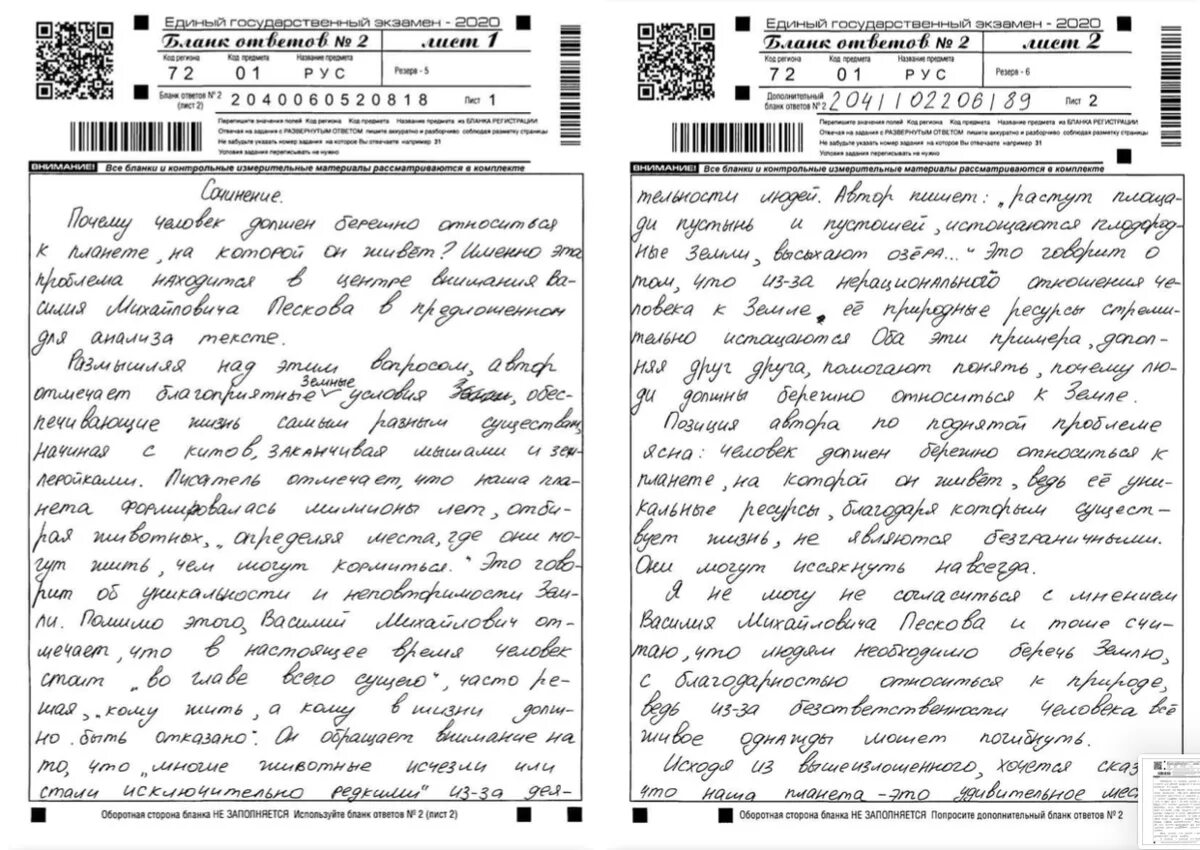 Единый государственный экзамен - 2020
Бланк ответов № 2
лист 1
Код региона
Код предмета
Название предмета
72
01
РУС
Резерв - 5
Бланк ответов № 2
(лист 2)
2040060520818
Лист 1
Перепишите значения полей Код региона Код предмета Название предмета из БЛАНКА РЕГИСТРАЦИИ
Отвечая на задания с РАЗВЕРНУТЫМ ОТВЕТОМ пишите аккуратно и разборчиво соблюдая разметку страницы
Не забудьте указать номер задания на которое Вы отвечаете например 31
Условия задания переписывать не нужно
ВНИМАНИЕ! Все бланки и контрольные измерительные материалы рассматриваются в комплекте
Сочинение.
Почему человек должен бережно относиться
к планете, на которой он живёт? Именно эта
проблема находится в центре внимания Ва-
силия Михайловича Пескова в предложенном
для анализа тексте.
Размышляя над этим вопросом, автор
отмечает благоприятные земные условия, обес-
печивающие жизнь самым разным существам,
начиная с китов, заканчивая мышами и зем-
леройками. Писатель отмечает, что наша пла-
нета формировалась миллионы лет, отби-
рая животных, „определяя места, где они мо-
гут жить, чем могут кормиться." Это гово-
рит об уникальности и неповторимости Зем-
ли. Помимо этого, Василий Михайлович от-
мечает, что в настоящее время человек
стоит „во главе всего сущего", часто ре-
шая, „кому жить, а кому в жизни долж-
но быть отказано". Он обращает внимание на
то, что „многие животные исчезли или
стали исключительно редкими" из-за дея-
Оборотная сторона бланка НЕ ЗАПОЛНЯЕТСЯ Используйте бланк ответов № 2 (лист 2)
Единый государственный экзамен - 2020
Бланк ответов № 2
лист 2
Код региона
Код предмета
Название предмета
72
01
РУС
Резерв - 6
Дополнительный
бланк ответов № 2
2041102206189
Лист 2
Перепишите значения полей Код региона Код предмета Название предмета из БЛАНКА РЕГИСТРАЦИИ
Отвечая на задания с РАЗВЕРНУТЫМ ОТВЕТОМ пишите аккуратно и разборчиво соблюдая разметку страницы
Не забудьте указать номер задания на которое Вы отвечаете например 31
Условия задания переписывать не нужно
ВНИМАНИЕ! Все бланки и контрольные измерительные материалы рассматриваются в комплекте
тельности людей. Автор пишет: „растут площа-
ди пустынь и пустошей, истощаются плодород-
ные земли, высыхают озёра..." Это говорит о
том, что из-за нерационального отношения че-
ловека к Земле, её природные ресурсы стреми-
тельно истощаются Оба эти примера, допол-
няя друг друга, помогают понять, почему лю-
ди должны бережно относиться к Земле.
Позиция автора по поднятой проблеме
ясна: человек должен бережно относиться к
планете, на которой он живёт, ведь её уни-
кальные ресурсы, благодаря которым сущест-
вует жизнь, не являются безграничными.
Они могут иссякнуть навсегда.
Я не могу не согласиться с мнением
Василия Михайловича Пескова и тоже счи-
таю, что людям необходимо беречь Землю,
с благодарностью относиться к природе,
ведь из-за безответственности человека всё
живое однажды может погибнуть.
Исходя из вышеизложенного, хочется сказ
что наша планета - это удивительное мес
Оборотная сторона бланка НЕ ЗАПОЛНЯЕТСЯ Попросите дополнительный бланк ответов № 2